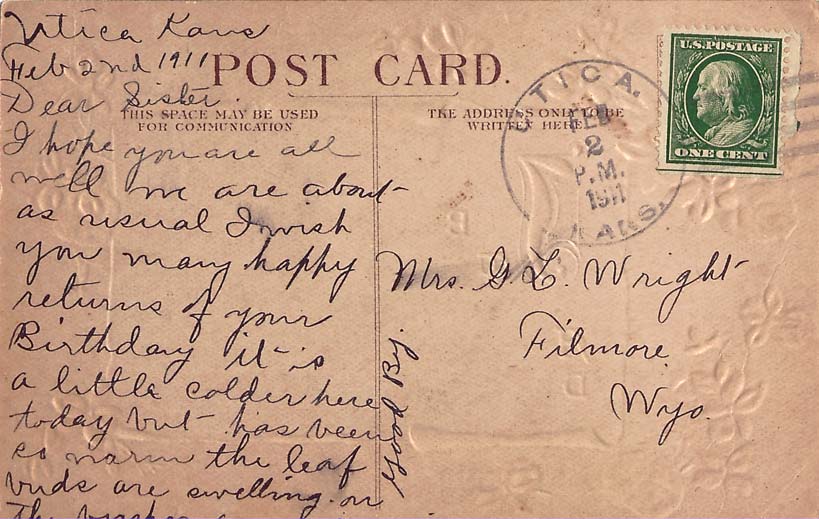 Utica Kans
Feb 2nd 1911
POST CARD.
Dear Sister.
THIS SPACE MAY BE USED
FOR COMMUNICATION
I hope you are all
well we are about
as usual I wish
you many happy
returns of your
Birthday it is
a little colder here
today but has been
so warm the leaf
buds are swelling on
the
Good By.
THE ADDRESS ONLY TO BE
WRITTEN HERE
UTICA,
FEB
2
P.M.
1911
KANS.
U.S. POSTAGE
ONE CENT
Mrs. G. L. Wright
Filmore
Wyo.